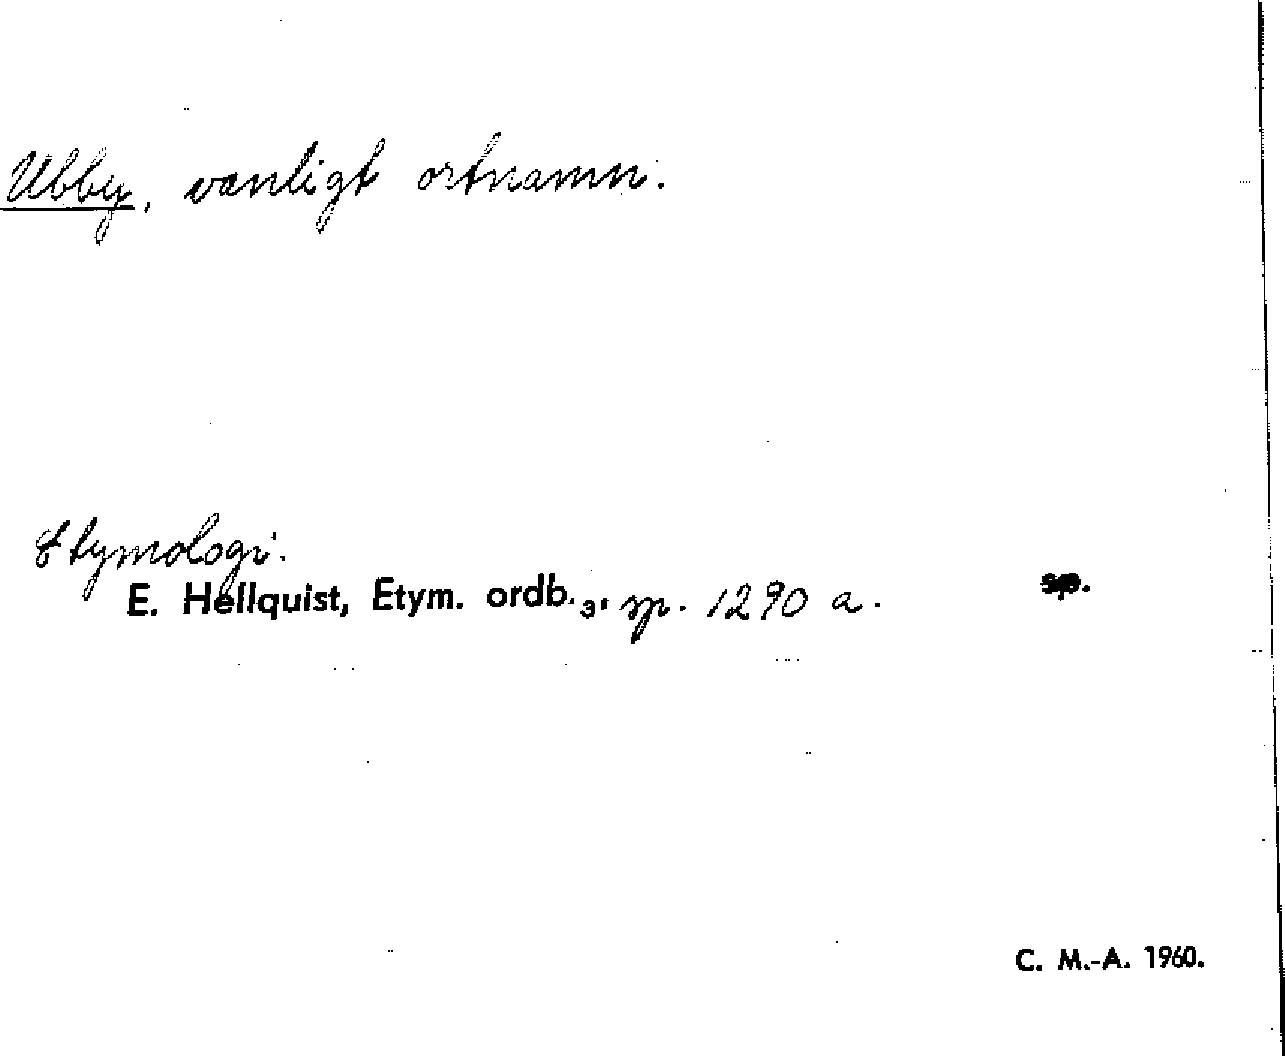 Ubby, vanligt ortnamn.
Etymologi.
E. Hellquist, Etym. ordb. 3, sp. 1290 a. sp.
C. M.-A. 1960.